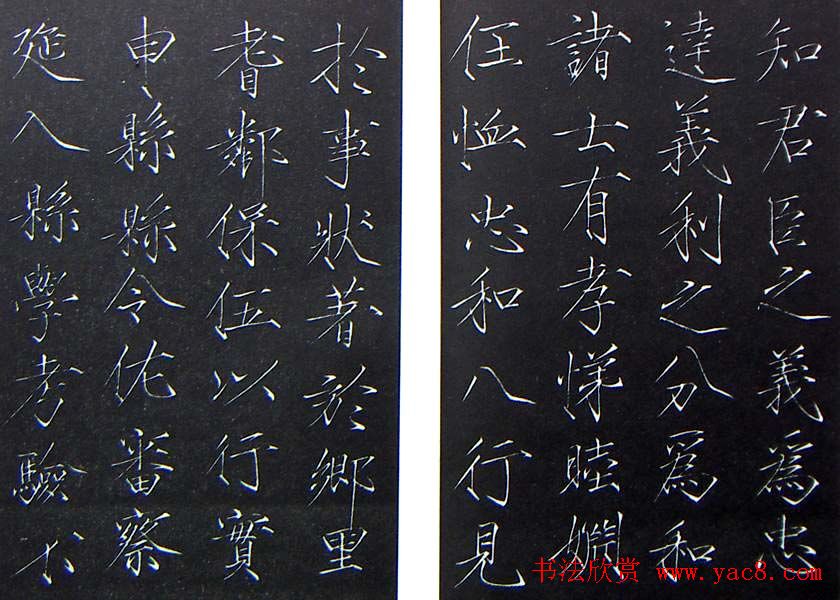 知君臣之義爲忠
達義利之分爲和
諸士有孝悌睦婣
任恤忠和八行見
於事狀著於鄉里
耆鄰保伍以行實
申縣縣令佐審察
延入縣學考驗不
书法欣赏 www.yac8.com